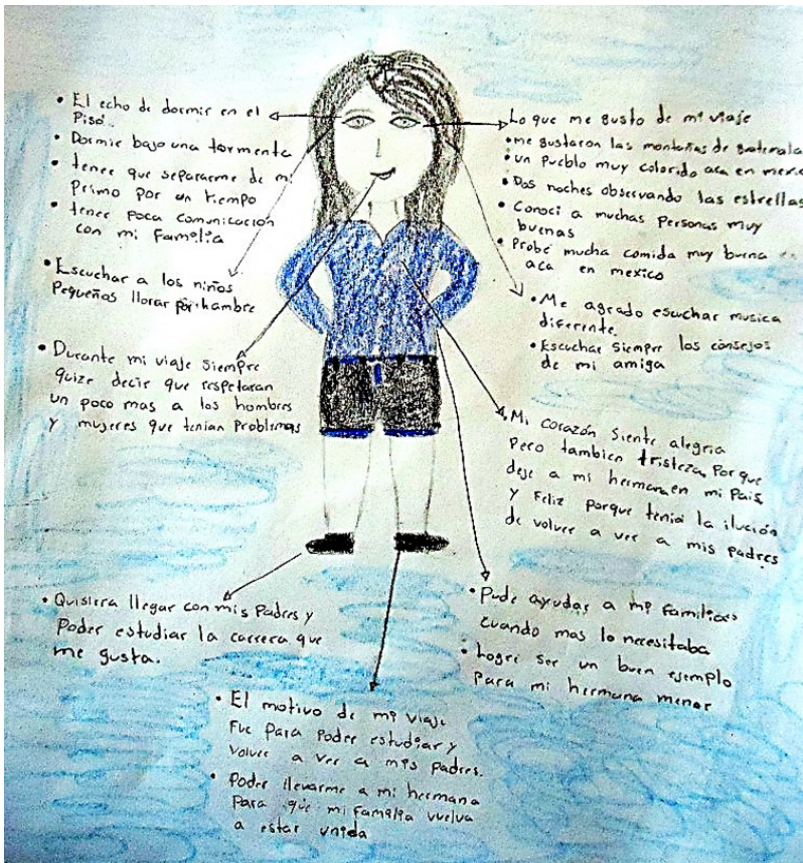 • El echo de dormir en el
Piso..
• Dormir bajo una tormenta
• tener que separarme de mi
Primo por un tiempo
• tener poca comunicación
con mi Familia
• Escuchar a los niños
Pequeños llorar por hambre
• Durante mi viaje siempre
quize decir que respetaran
un poco mas a los hombres
y mujeres que tenian Problemas
Lo que me gusto de mi viaje
• me gustaron las montañas de guatemala
• un Pueblo muy colorido aca en mexi
• Dos noches observando las estrellas
• Conoci a muchas personas muy
buenas
• Probé mucha comida muy buena
aca en mexico
• Me agrado escuchar musica
diferente.
• Escuchar siempre los consejos
de mi amiga
• Mi corazón siente alegria
Pero tambien tristeza, Porque
deje a mi hermana en mi Pais,
y Feliz porque tenia la ilución
de volver a ver a mis padres
• Pude ayudar a mi familia
cuando mas lo necesitaba
• Logré ser un buen ejemplo
para mi hermana menor
• Quisiera llegar con mis Padres y
Poder estudiar la carrera que
me gusta.
• El motivo de mi viaje
Fue para Poder estudiar y
volver a ver a mis padres.
• Poder llevarme a mi hermana
Para que mi familia vuelva
a estar unida